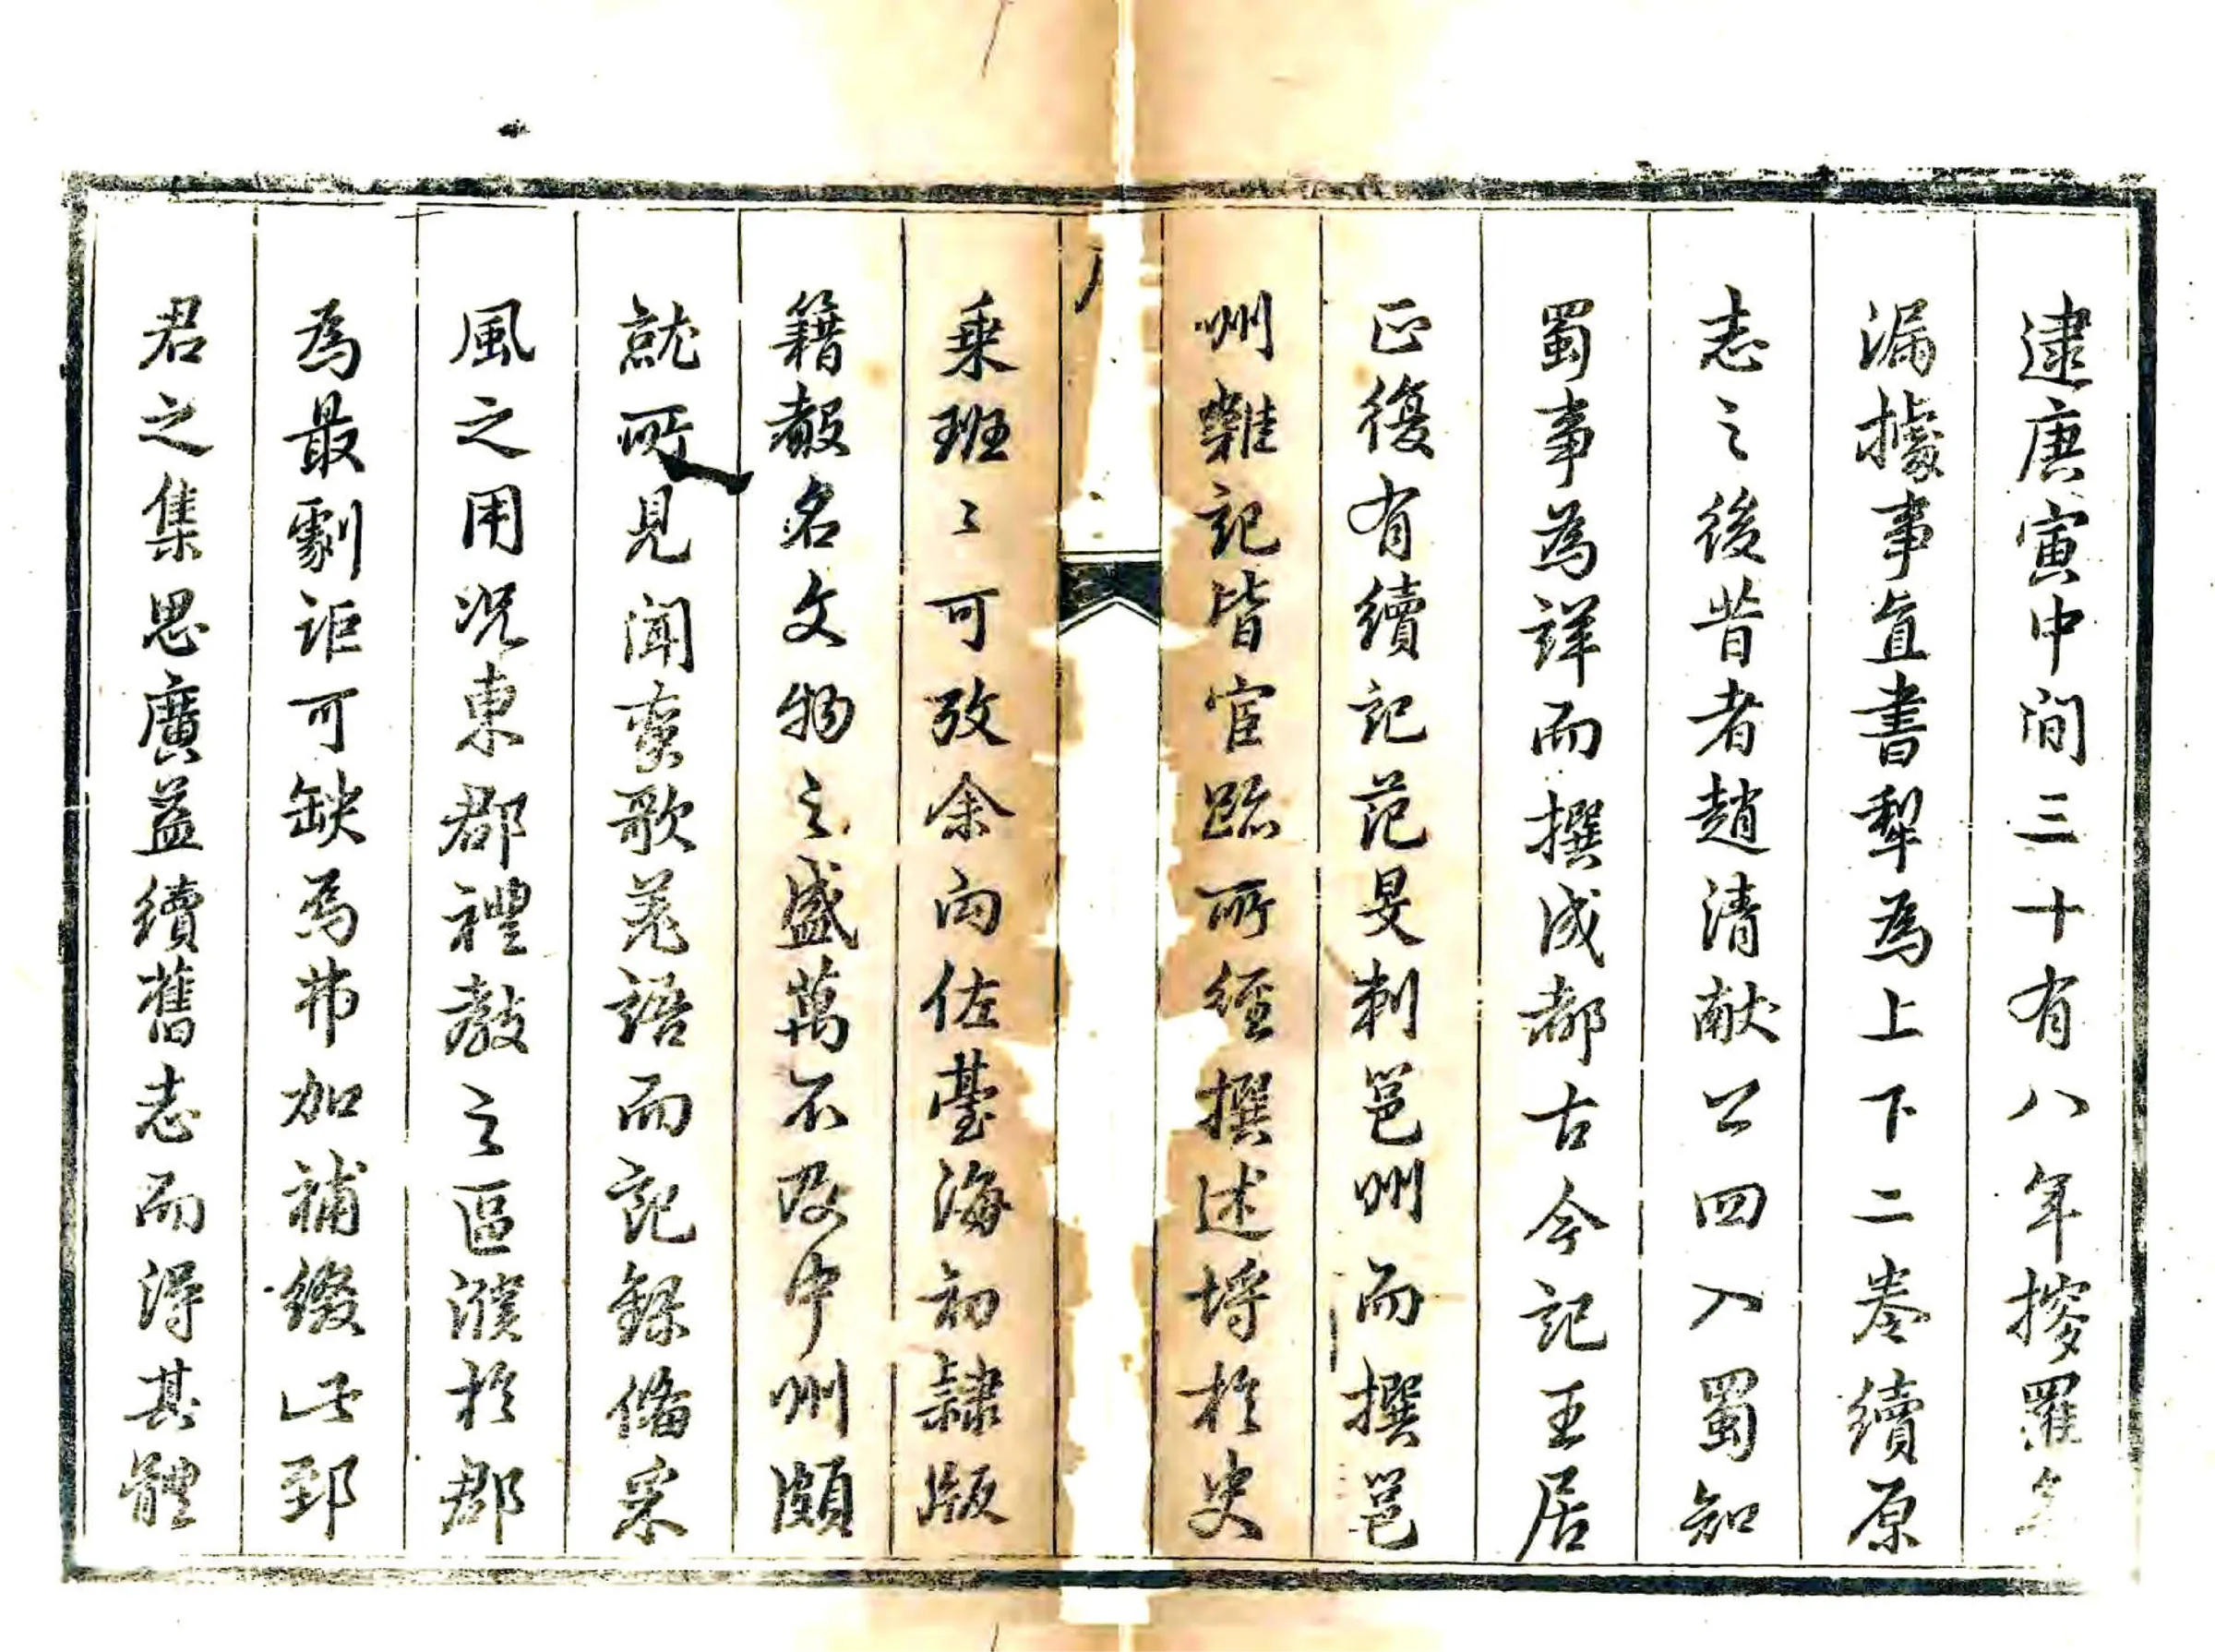 逮庚寅中間三十有八年搜羅
漏據事直書犁為上下二卷續原
志之後昔者趙清献公四入蜀知
蜀事為詳而撰成都古今記王居
正復有續記范旻刺邕州而撰邕
州雜記皆宦跡所經撰述埒於史
乘班〻可攷余向佐臺海初隸版
籍聲名文物之盛萬不及中州頗
就所見聞蛮歌羌語而記録偹采
風之用况東郡禮教之區濮於郡
為最劇詎可缺焉弗加補綴此郅
君之集思廣益續舊志而得其體